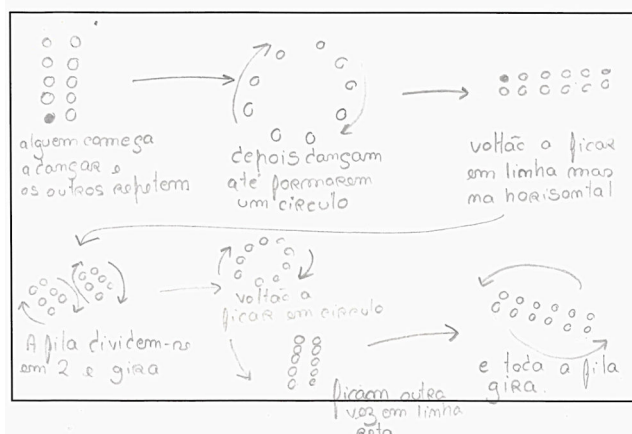 alguem começa
a dançar e
os outros repetem
depois dançam
até formarem
um circulo
voltão a ficar
em linha mas
na horisomtal
A fila dividem-se
em 2 e gira
voltão a
ficar em circulo
ficam outra
vez em linha
reta
e toda a fila
gira.